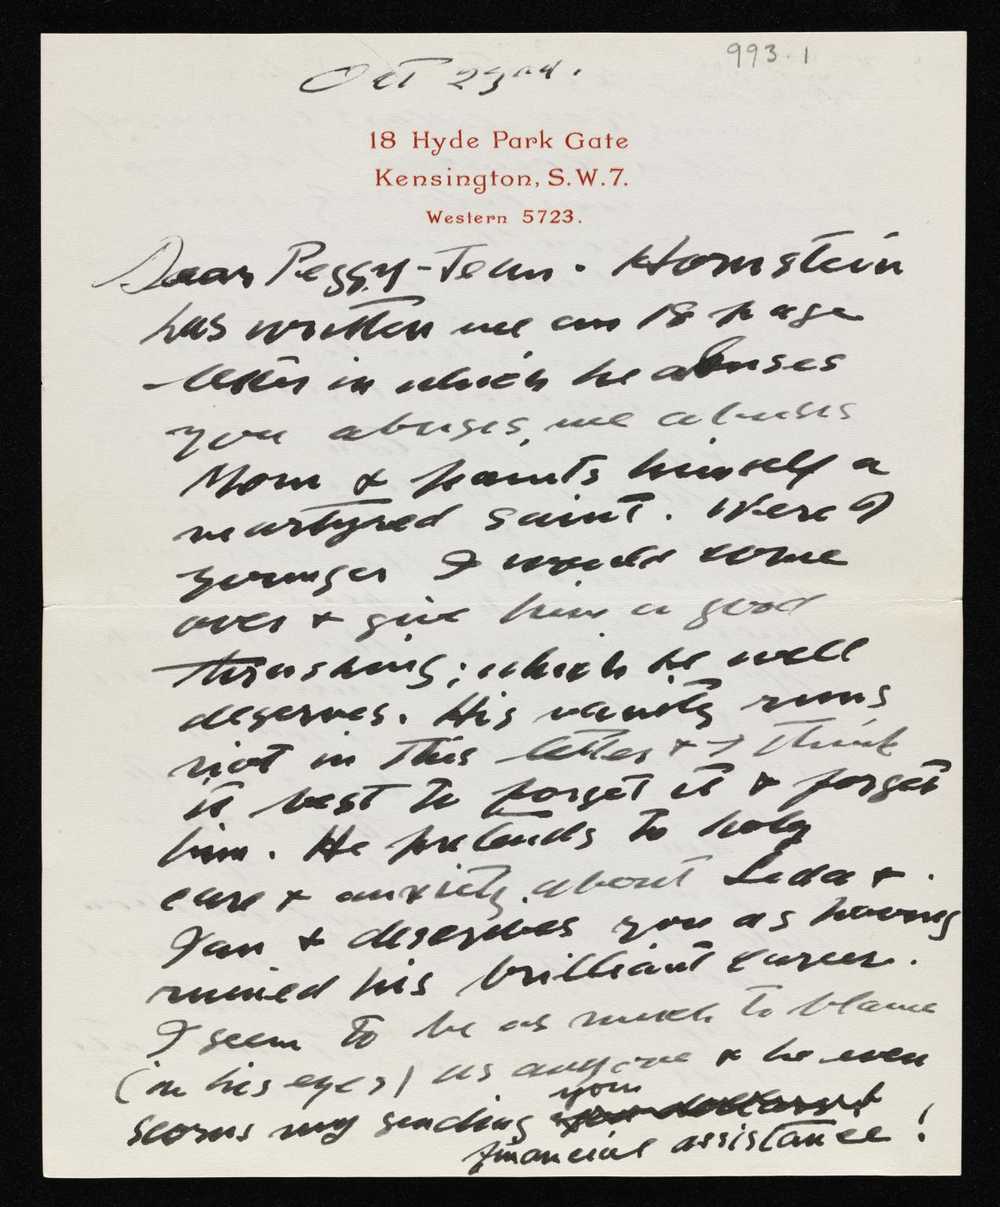 993.1
Oct 23rd.
18 Hyde Park Gate
Kensington, S.W.7.
Western 5723.
Dear Peggy-Jean. Hornstein
has written me an 18 page
letter in which he abuses
you abuses, me abuses
Mom & paints himself a
martyred saint. Were I
younger I would come
over & give him a good
thrashing; which he well
deserves. His vanity runs
riot in this letter & I think
it best to forget it & forget
him. He pretends to holy
care & anxiety about Leda &
Ian & describes you as having
ruined his brilliant career.
I seem to be as much to blame
(in his eyes) as anyone & he even
scorns my sending your
financial assistance!